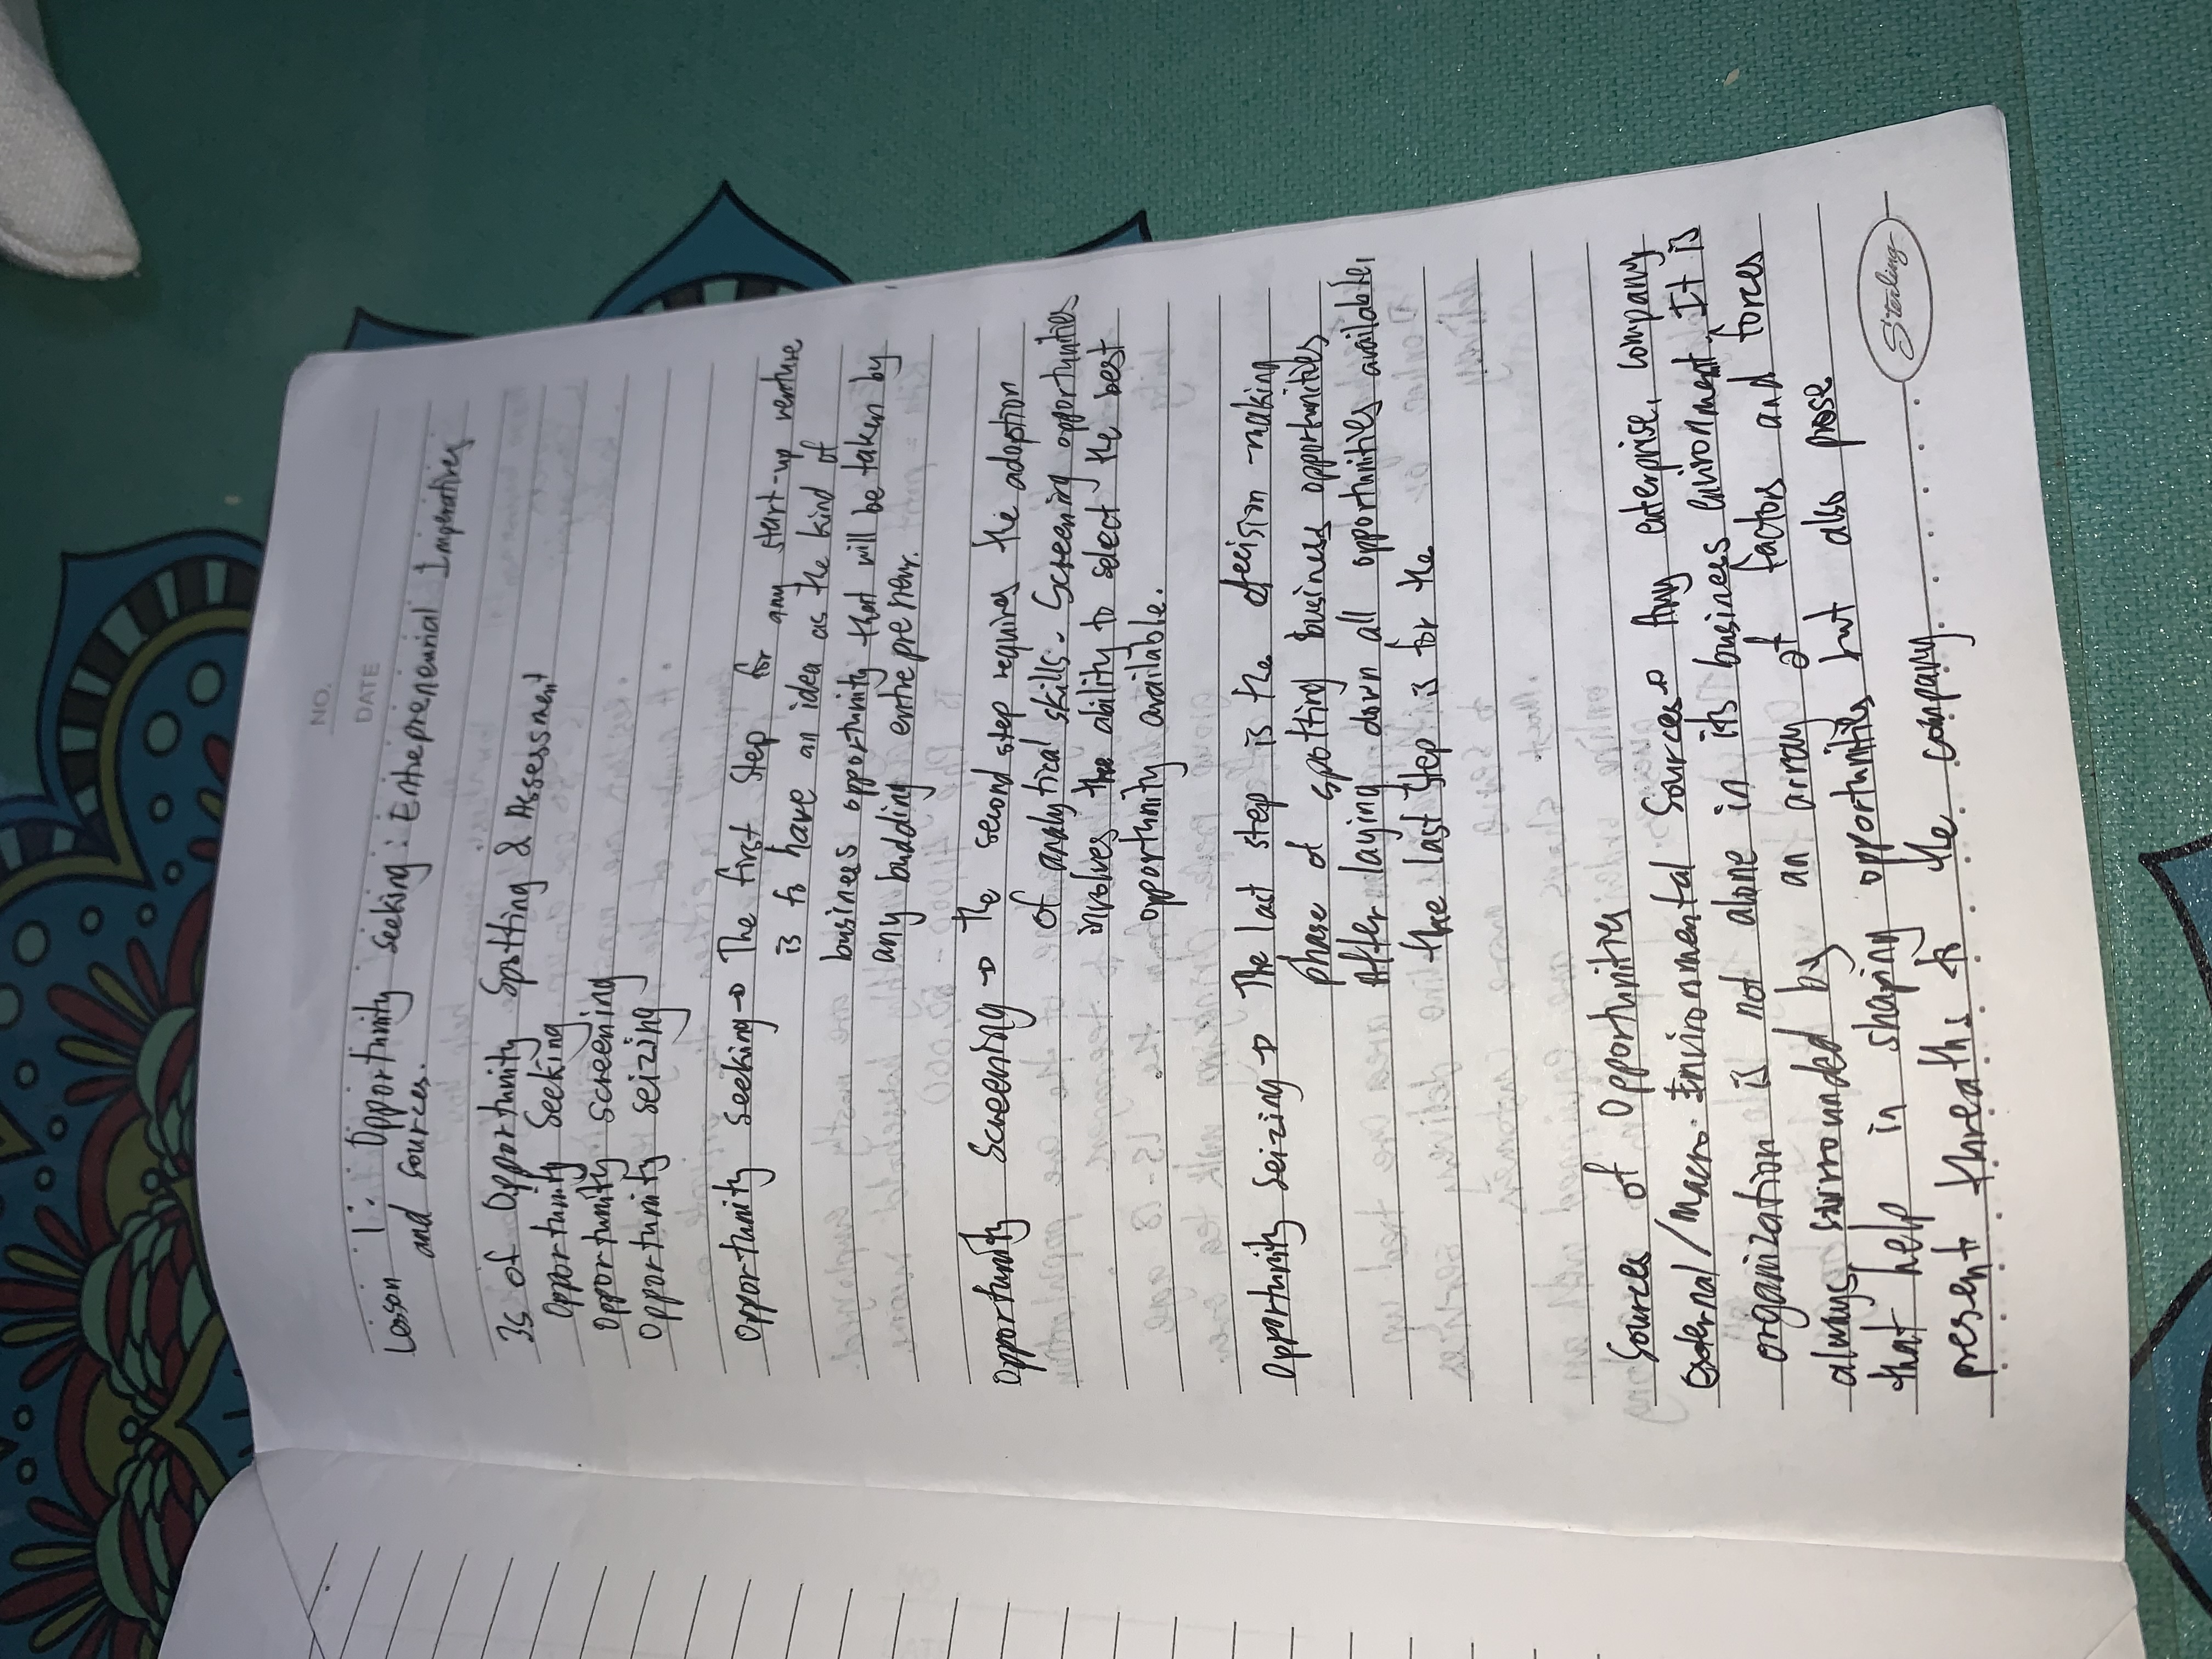 NO.
DATE
Lesson 1: Opportunity seeking: Entrepreneurial Imperatives
and sources.
3s of Opportunity Spotting & Assessment
Opportunity Seeking
Opportunity screening
Opportunity seizing
Opportunity seeking → The first step for any start-up venture
is to have an idea as the kind of
business opportunity that will be taken by
any budding entrepreneur.
Opportunity Screening → the second step requires the adoption
of analytical skills. Screening opportunities
involves the ability to select the best
opportunity available.
Opportunity Seizing → The last step is the decision-making
phase of spotting business opportunities
After laying down all opportunities available,
the last step is for the
Sources of Opportunities
External/Macro Environmental Sources → Any enterprise, company,
organization is not alone in its business environment. It is
always surrounded by an array of factors and forces
that help in shaping opportunities but also prose
present threaths to the company
Sterling